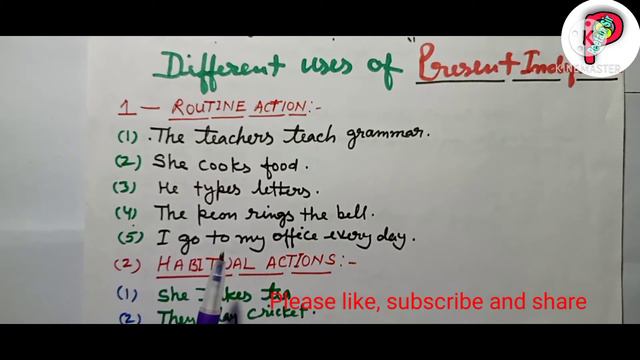 Different uses of Present Indf
KINEMASTER
1 — ROUTINE ACTION:-
(1) .The teachers teach grammar.
(2) She cooks food.
(3) He types letters.
(4) The peon rings the bell.
(5) I go to my office every day.
(2) HABITUAL ACTIONS:-
(1) She takes tea
Please like, subscribe and share
(2) They play cricket.